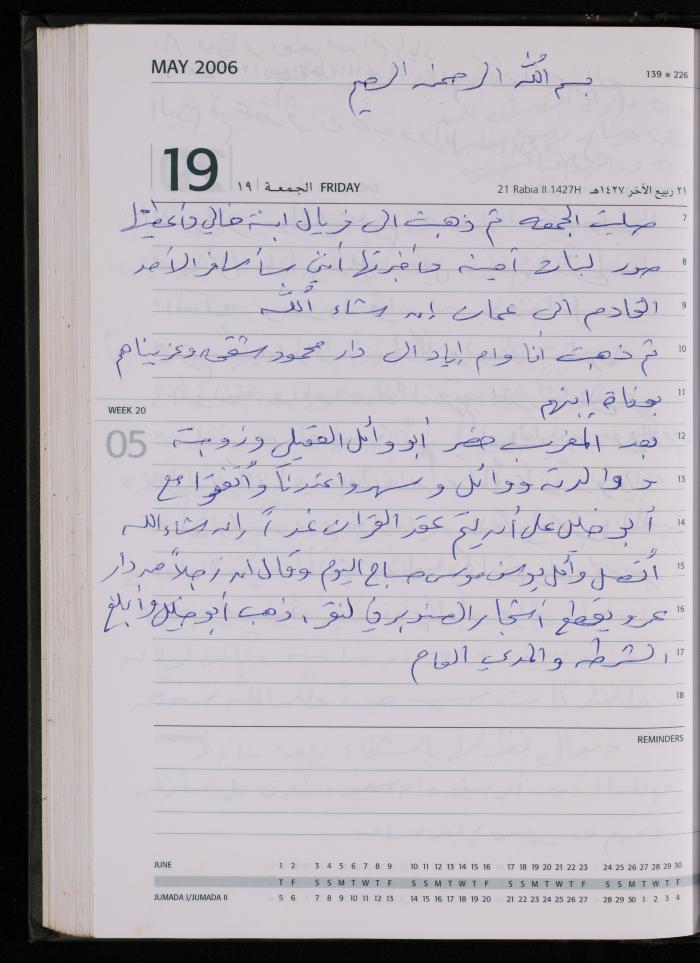 MAY 2006
بسم الله الرحمن الرحيم
139 ■ 226
19
الجمعة ١٩
FRIDAY
21 Rabia II 1427H
٢١ ربيع الآخر ١٤٢٧هـ
7
صليت الجمعه ثم ذهبت الى فريال ابنة خالي وأعطيتها
8
صور لبنات أمينه وأخبرتها أنني سأسافر الأحد
9
القادم الى عمان إن شاء الله
10
ثم ذهبت أنا وام إياد الى دار محمود شقى وعزيناهم
11
بوفاة إبنهم
WEEK 20
05
12
بعد المغرب حضر أبو وائل العقيلي وزوجته
13
و والدته ووائل و سهروا عندنا وأتفقوا مع
14
أبو خليل على أن يتم عقد القران غداً إن شاء الله
15
أتصل وائل يوسف موسى صباح اليوم وقال ان رجلاً من دار
16
عمرو يقطع أشجار الصنوبر في ذهب أبو خليل وأبلغ
17
الشرطه والمدعي العام
18
REMINDERS
JUNE 1 2 3 4 5 6 7 8 9 10 11 12 13 14 15 16 17 18 19 20 21 22 23 24 25 26 27 28 29 30
T F S S M T W T F S S M T W T F S S M T W T F S S M T W T F
JUMADA I/JUMADA II 5 6 7 8 9 10 11 12 13 14 15 16 17 18 19 20 21 22 23 24 25 26 27 28 29 30 1 2 3 4